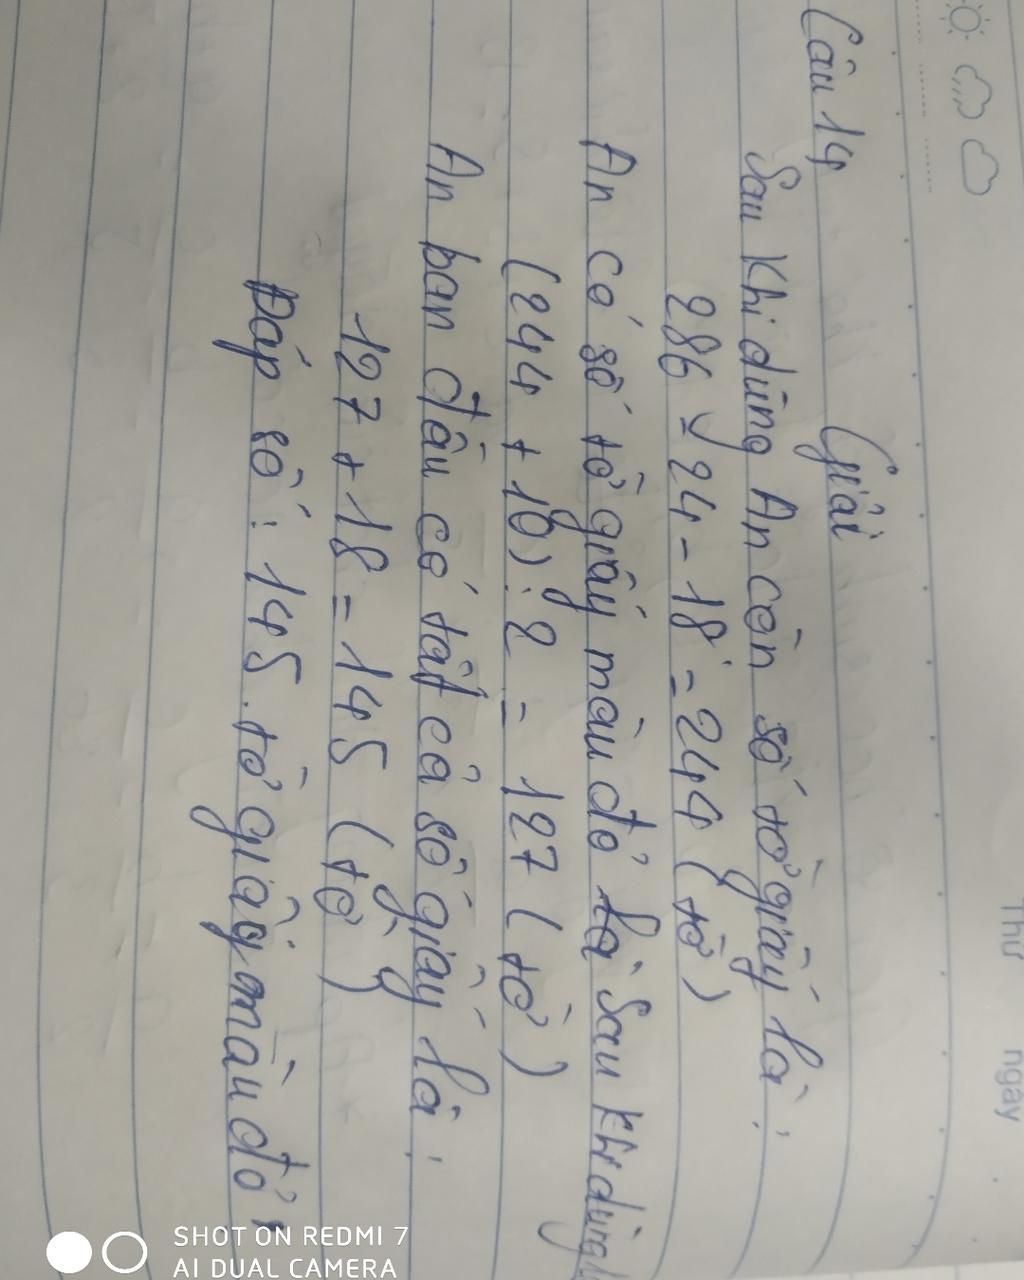 Thứ ngày
Câu 14 Giải
Sau khi dùng An còn số tờ giấy là:
286 - 24 - 18 = 244 (tờ)
An có số tờ giấy màu đỏ là sau khi dùng là
(244 + 10) : 2 = 127 (tờ)
An ban đầu có tất cả số giấy là:
127 + 18 = 145 (tờ)
Đáp số: 145 tờ giấy màu đỏ;
SHOT ON REDMI 7
AI DUAL CAMERA